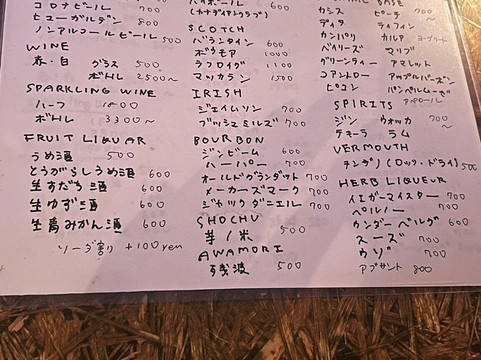 コロナビール 700
ヒューガルデン 800
ノンアルコールビール 500
WINE
赤・白 グラス 500
ボトル 2500〜
SPARKLING WINE
ハーフ
ボトル 3300〜
FRUIT LIQUAR
うめ酒 500
とうがらしうめ酒 600
生すだち酒 600
生ゆず酒 600
生みかん酒 600
ソーダ割り +100yen
(カナディアンクラブ)
SCOTCH
バランタイン 600
ボウモア 1000
ラフロイグ 1100
マッカラン 1500
IRISH
ジェイムソン 700
ブッシュミルズ 700
BOURBON
ジンビーム 600
ハーパー 700
オールドグランダット 700
メーカーズマーク 700
ジャックダニエル 700
SHOCHU
芋/米 500
AWAMORI
残波 500
BASE
カシス ピーチ 700
ディタ ティフィン
カンパリ カルア ヨーグルト
ベイリーズ マリブ
グリーンティー アマレット
コアントロー アップルバーボン
ピコン パンペルムーゼ
アペロール
SPIRITS
ジン ウォッカ 700〜
テキーラ ラム
VERMOUTH
チンザノ(ロッソ・ドライ) 500
HERB LIQUEUR
イエガーマイスター 700
ペルノー 700
ウンダーベルグ 600
スーズ 700
ウゾ 700
アブサント 800